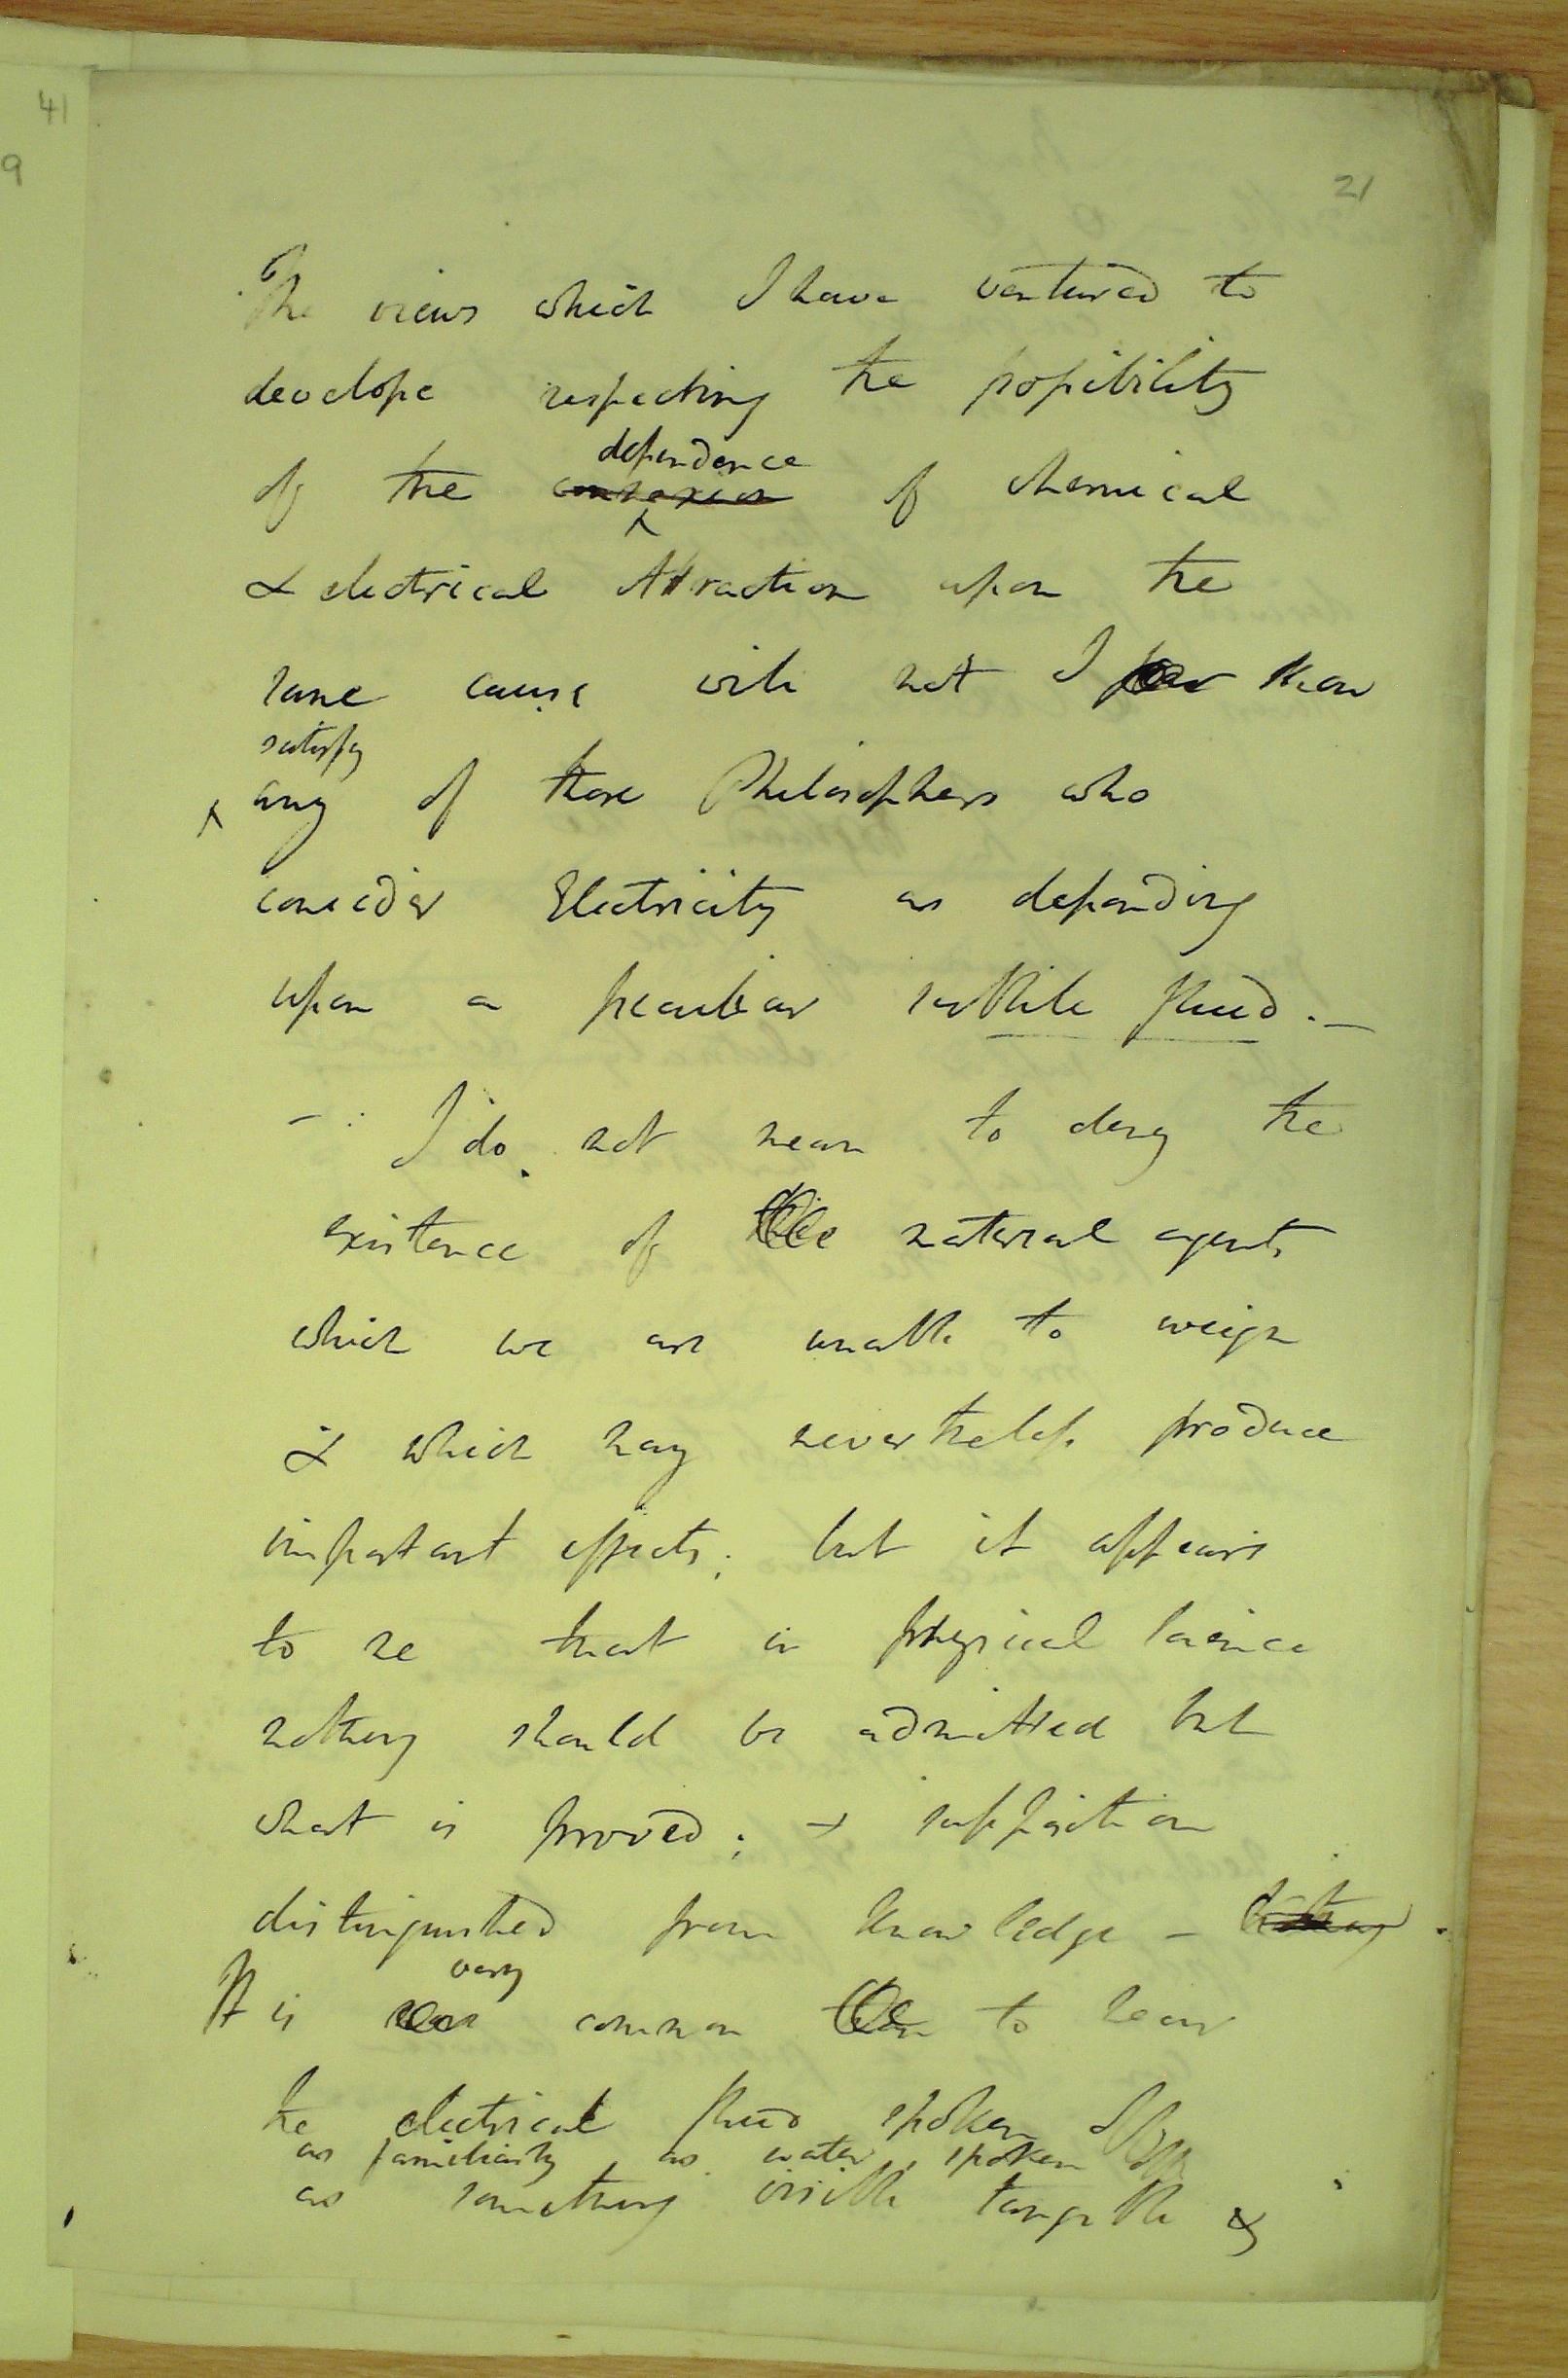 41
9
21
The views which I have ventured to
develope respecting the possibility
dependence
of the connexion of chemical
& electrical Attraction upon the
same cause will not I know
satisfy
any of those Philosophers who
consider Electricity as depending
upon a peculiar subtile fluid. —
— I do not mean to deny the
existence of material agents
which we are unable to weigh
& which may nevertheless produce
important effects; but it appears
to me that in physical science
nothing should be admitted but
what is proved; & supposition
distinguished from knowledge –
very
It is common to hear
the electrical fluid spoken of
as familiarly as water, spoken of
as something visible tangible &